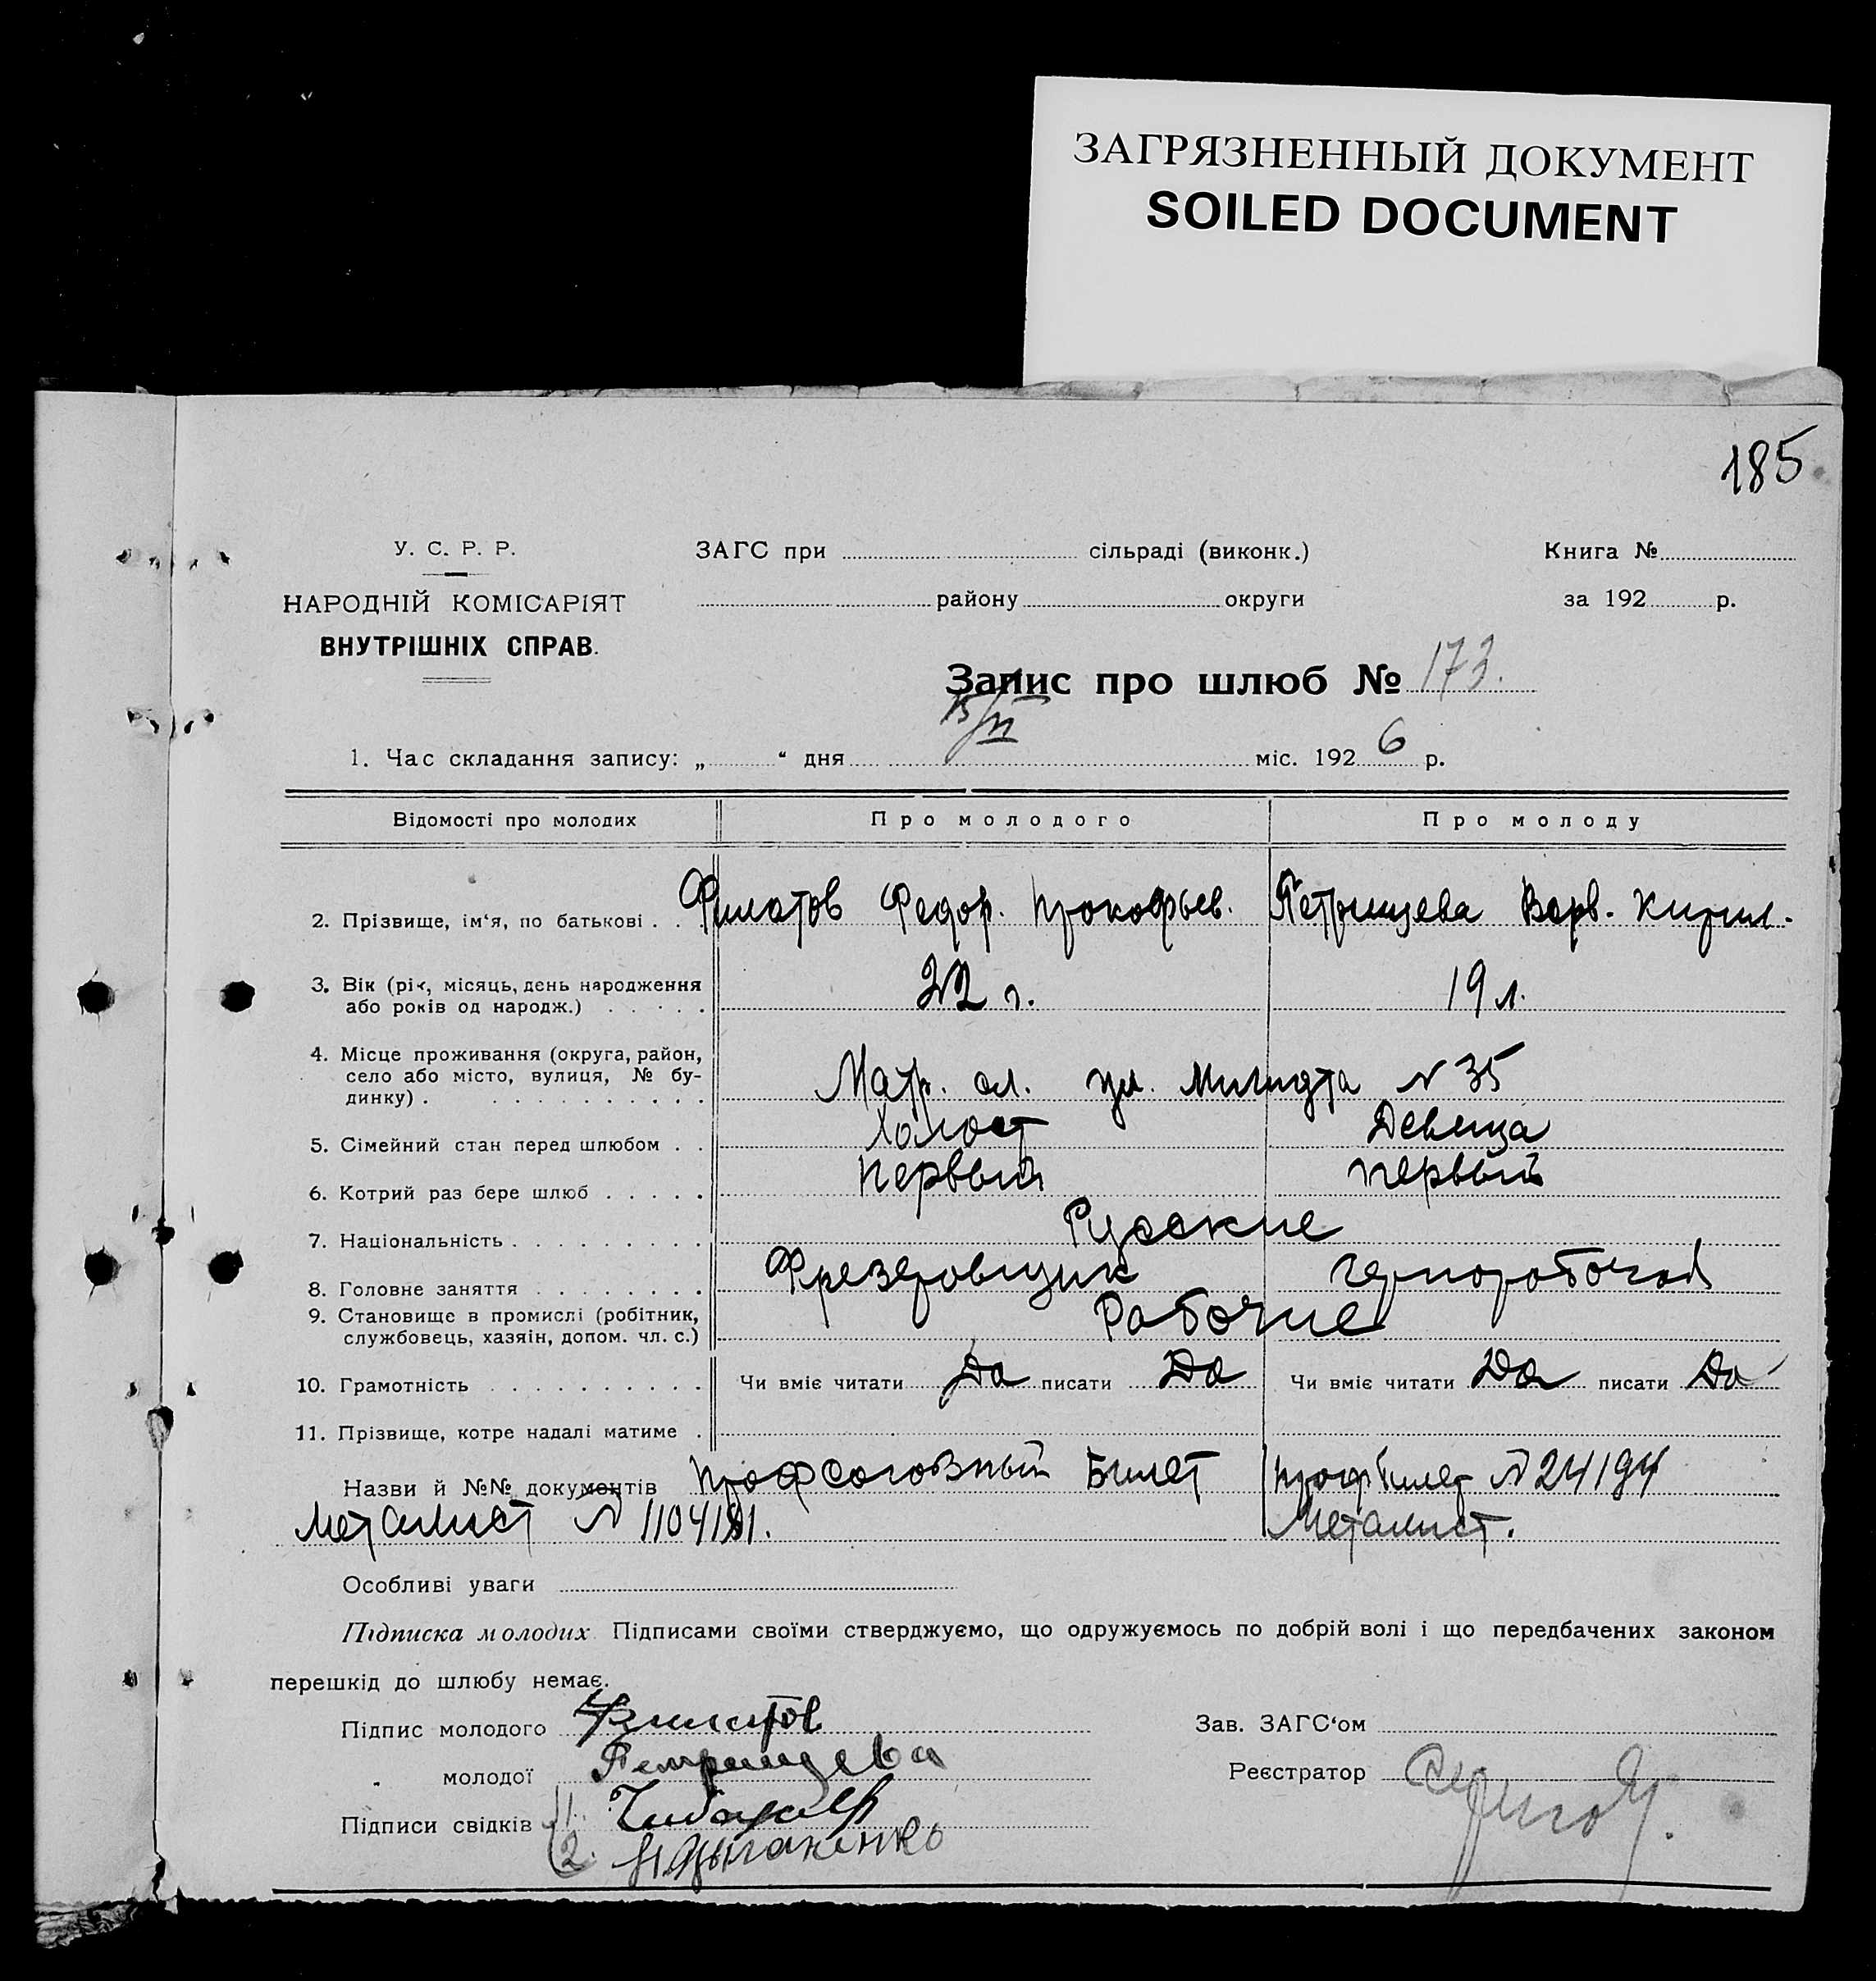 ЗАГРЯЗНЕННЫЙ ДОКУМЕНТ
SOILED DOCUMENT
185
У. С. Р. Р.
НАРОДНІЙ КОМІСАРІЯТ
ВНУТРІШНІХ СПРАВ.
ЗАГС при сільраді (виконк.)
району округи
Книга №
за 192 р.
Запис про шлюб № 173.
1. Час складання запису: „ “ дня міс. 1926 р.
Відомості про молодих Про молодого Про молоду
2. Прізвище, ім‘я, по батькові . . . Филатов Федор. Прокофьев. Петрищева Варв. Кирил.
3. Вік (рік, місяць, день народження
або років од народж.) . . . . . 22 г. 19 л.
4. Місце проживання (округа, район,
село або місто, вулиця, № бу-
динку) . . . . . . . . . . . Матр. сл. ул. № 35
5. Сімейний стан перед шлюбом . . Холост Девица
6. Котрий раз бере шлюб . . . . . Первый Первый
7. Національність . . . . . . . . . Русские
8. Головне заняття . . . . . . . . Фрезеровщик Чернорабочая
9. Становище в промислі (робітник,
службовець, хазяін, допом. чл. с.) Рабочие
10. Грамотність . . . . . . . . . . Чи вміє читати Да писати Да Чи вміє читати Да писати Да
11. Прізвище, котре надалі матиме .
Назви й №№ документів Профсоюзный Билет Профбилет № 24194
Металист № 1104181. Металист.
Особливі уваги
Підписка молодих Підписами своїми стверджуємо, що одружуємось по добрій волі і що передбачених законом
перешкід до шлюбу немає.
Підпис молодого Филатов
„ молодої Петрищева
Підписи свідків 1.
2. Цыганенко
Зав. ЗАГС‘ом
Реєстратор